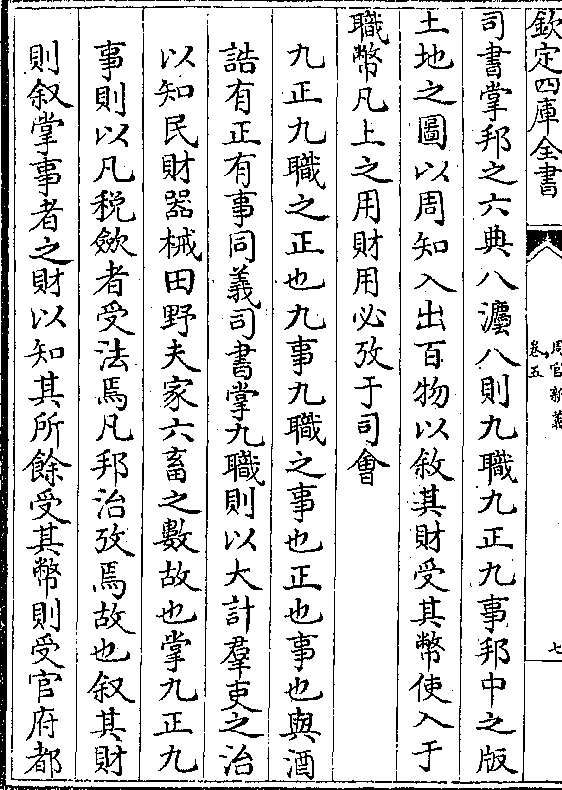 欽定四庫全書
周官新義
卷五
七
司書掌邦之六典八灋八則九職九正九事邦中之版
土地之圖以周知入出百物以敘其財受其幣使入于
職幣凡上之用財用必攷于司會
九正九職之正也九事九職之事也正也事也與酒
誥有正有事同義司書掌九職則以大計羣吏之治
以知民財器械田野夫家六畜之數故也掌九正九
事則以凡税歛者受法焉凡邦治攷焉故也叙其財
則叙掌事者之財以知其所餘受其幣則受官府都